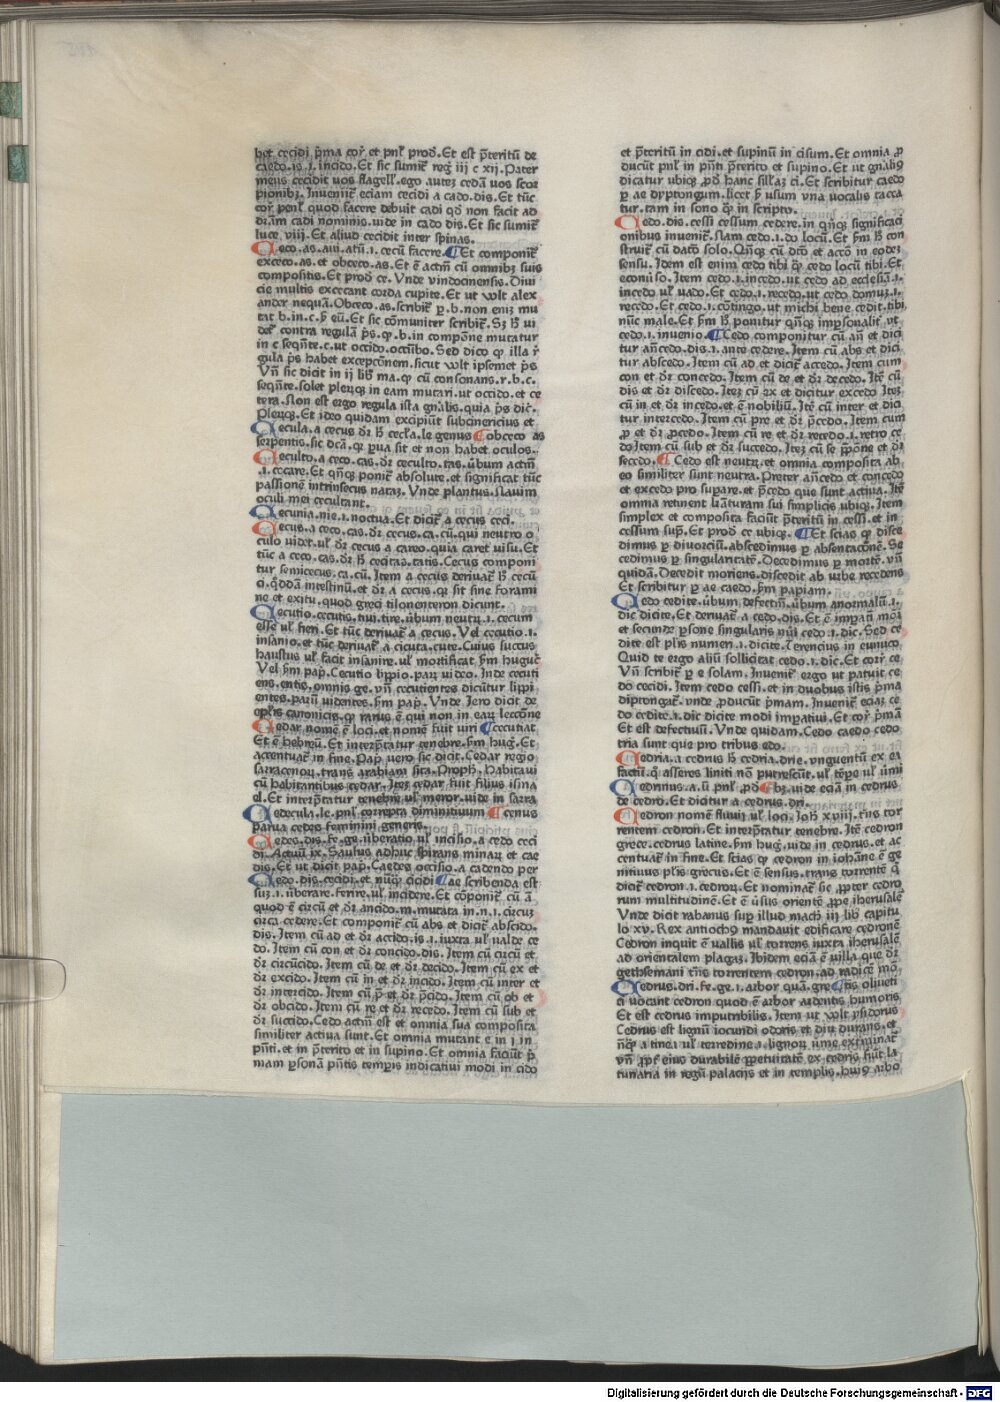 bet cecidi p̄ma cor̄ et pnl̄ prod̄. Et est p̄teritū de
caedo. is. i. incido. Et sic sumit᷑ reg̅ iii c xii. Pater
meus cecidit uos flagell̄. ego autez cedā uos scor
pionibz. Inuenit᷑ eciam cecidi a cado. dis. Et tūc
cor̄ penl̄ quod facere debuit cadi qd̄ non facit ad
dr̄am cadi nominis. uide in cado dis. Et sic sumit᷑
luce. viii. Et aliud cecidit inter spinas.
Ceco. as. aui. atū. i. cecū facere. ¶ Et componit᷑
exceco. as. et obceco. as. Et ē actm̄ cū omnibz suis
compositis. Et prod̄ ce. Vnde vindocinensis. Diui
cie multis excecant corda cupite. Et ut volt alex
ander nequā. Obceco. as. scribit᷑ p̱. b. non eniz mu
tat b. in. c. p̄ eū. Et sic cōmuniter scribit᷑. Sz h̄ vi
det᷑ contra regulā p̄s. ꝙ. b. in compōne mutat᷑
in c seqn̄te. c. ut occido. occūbo. Sed dico ꝙ illa r̄
gula p̄s habet excepcōnem. sicut volt ipsemet p̄s
Vn̄ sic dicit in ij lib̄ ma. ꝙ cū consonans. r. b. c.
seqn̄te. solet pleruꝫ in eam mutari. ut occido. et ce
tera. Non est ergo regula ista gn̄alis. quia p̄s dic̄.
Pleruꝫ. Et ideo quidam excipiūt subcinericius et
Cecula. a cecus dr̄ h̄ cecl̄a. le genus ¶ obceco as
serpentis. sic dcā. ꝙ p̱ua sit et non habet oculos.
Ceculto. a ceco. cas. dr̄ ceculto. tas. ūbum actm̄
. i. cecare. Et qn̄qꝫ ponit᷑ absolute. et significat tūc
passionē intrinsecus nataz. Vnde plantus. Nauim
oculi mei cecultant.
Cecunia. nie. i. noctua. Et dicit᷑ a cecus ceci.
Cecus. a ceco. cas. dr̄ cecus. ca. cū. qui neutro o
culo videt. ul̄ dr̄ cecus a careo. quia caret uisu. Et
tūc a ceco. cas. dr̄ h̄ cecitas. tatis. Cecus componi
tur semicecus. ca. cū. Item a cecus deriuat᷑ h̄ cecū
ci. qd̄dā intestinū. et dr̄ a cecus. ꝙ sit sine forami
ne et exitu. quod greci tilonenteron dicunt.
Cecutio. cecutis. tiui. tire. ūbum neutꝝ. i. cecum
esse ul̄ fieri. Et tūc deriuat᷑ a cecus. Vel cecutio. i.
insanio. et tūc deriuat᷑ a cicuta. cute. Cuius succus
haustus ul̄ facit insanire. ul̄ mortificat. scd̄m huguc̄
Vel scd̄m pap̄. Cecutio lippio. paꝝ video. Inde cecuti
ens. entis. omnis ge. vn̄ cecutientes dicūtur lippi
entes. paꝝ uidentes. scd̄m pap̄. Vnde Iero dicit de
epl̄is canonicis. ꝙ rarus ē qui non in eaꝝ leccōne
Cedar. nomē ē loci. et nomē fuit viri ¶ cecutiat
Et ē hebreū. Et interp̄tatur tenebre. scd̄m hug̅. Et
accentuat᷑ in fine. Pap̄ uero sic dicit. Cedar regio
sarracenoꝝ. trans arabiam sita. Proph̄. Habitaui
cū habitantibus cedar. Itez cedar fuit filius isma
el. Et interp̄tatur tenebre ul̄ meror. uide in sarra
Cedecula. le. pnl̄ correpta diminitiuum ¶ cenus
parua cedes feminini generis.
Cedes. dis. fe. ge. ūberatio. ul̄ incisio. a cedo ceci
di. Actuū ix. Saulus adhuc spirans minaꝝ et cae
dis. Et ut dicit pap̄. Caedes occisio. a cadendo per
Cedo. dis. cecidi. et nūqꝫ cicidi ¶ ae scribenda est
suz. i. ūberare. ferire. ul̄ incidere. Et cōponit᷑ cū ā
quod ē circū et dr̄ ancido. m. mutata in. n. i. circuz
circa cedere. Et componit᷑ cū abs et dicit᷑ abscido.
dis. Item cū ad et dr̄ accido. is. i. iuxta ul̄ ualde ce
do. Item cū con et dr̄ concido. dis. Item cū circū et
dr̄ circūcido. Item cū de et dr̄ decido. Item cū ex et
dr̄ excido. Item cū in et dr̄ incido. Item cū inter et
dr̄ intercido. Item cū p̄ et dr̄ p̄cido. Item cū ob et
dr̄ obcido. Item cū re et dr̄ recedo. Item cū sub et
dr̄ succido. Cedo actm̄ est et omnia sua composita
similiter actiua sunt. Et omnia mutant e in i in
pn̄ti. et in p̄terito et in supino. Et omnia faciūt p̄
mam p̱sonā pn̄tis temp̱is indicatiui modi in cido
et p̄teritū in cidi. et supinū in cisum. Et omnia ꝓ
ducūt pnl̄ in pn̄ti p̄terito et supino. Et ut gn̄aliꝰ
dicatur ubiqꝫ ꝓd̄ hanc sillāz ci. Et scribitur caedo
p̱ ae dyptongum. licet p̄ usum vna vocalis tacea
tur. tam in sono ꝙ in scripto.
Cedo. dis. cessi cessum cedere. in qn̄qꝫ significaci
onibus inuenit᷑. Nam cedo. i. do locū. Et scd̄m h̄ con
struit᷑ cū datō solo. Qn̄qꝫ cū dtō et accō in eodez
sensu. Idem est enim cedo tibi ꝙ cedo locū tibi. Et
econūso. Item cedo. i. incedo. ut cedo ad ecclesiā. i.
incedo ul̄ uado. Et cedo. i. recedo. ut cedo domuz. i.
recedo. Et cedo. i. cōtingo. ut michi bene cedit. tibi
nūc male. Et scd̄m h̄ ponitur qn̄qꝫ imp̱sonalit᷑ ut
cedo. i. inuenio. ¶ Cedo componitur cū an̄ et dici
tur an̄cedo. dis. i. ante cedere. Item cū abs et dici
tur abscedo. Item cū ad et dicit᷑ accedo. Item cum
con et dr̄ concedo. Item cū de et dr̄ decedo. Itē cū
dis et dr̄ discedo. Itez cū ex et dicitur excedo Itez
cū in et dr̄ incedo. et ē nobiliū. Itē cū inter et dici
tur intercedo. Item cū pre et dr̄ p̄cedo. Item cum
ꝓ et dr̄ ꝓcedo. Item cū re et dr̄ recedo. i. retro ce
do Item cū sub et dr̄ succedo. Itez cū se p̄pōne et dr̄
secedo. ¶ Cedo est neutꝝ. et omnia composita ab
eo similiter sunt neutra. Preter an̄cedo et concedo
et excedo pro sup̱are. et p̄cedo que sunt actiua. Itē
omnia retinent lr̄aturam sui simplicis ubiqꝫ. Item
simplex et composita faciūt p̄teritū in cessi. et in
cessum sup̄. Et prod̄ ce ubiqꝫ. ¶ Et scias ꝙ disce
dimus p̱ diuorciū. abscedimus p̱ absentacōnē. Se
cedimus p̱ singularitatē. Decedimus p̱ mortē. vn̄
quidā. Decedit moriens. discedit ab urbe recedens
Et scribitur p̱ ae caedo. scd̄m papiam.
Cedo cedite. ūbum defectm̄. ūbum anormalū. i.
dic dicite. Et deriuat᷑ a cedo. dis. Et ē imp̱an̄ mōi
et secunde p̱sone singularis nūi cedo. i. dic. Sed ce
dite est pl̄is numeri. i. dicite. Terencius in eunuco
Quid te ergo aliū sollicitat cedo. i. dic. Et cor̄ ce
Vn̄ scribit᷑ p̱ e solam. Inuenit᷑ ergo ut patuit ce
do cecidi. Item cedo cessi. et in duobus istis p̄ma
diptongat᷑. vnde ꝓducūt p̄mam. Inuenit᷑ eciaz ce
do cedite. i. dic dicite modi imp̱atiui. Et cor̄ p̄mā
Et est defectiuū. Vnde quidam. Cedo caedo cedo
tria sunt que pro tribus edo.
Cedria. a cedrus h̄ cedria. drie. vnguentū ex ea
factū. qͦ asseres liniti nō putrescūt. ul̄ tēpe ul̄ ūmi
Cedrinus. a. ū pnl̄ ꝓd̄ ¶ bz. uide eciā in cedrus
de cedro. Et dicitur a cedrus. dri.
Cedron nomē fluuij ul̄ loci. Ioh̄ xviii. tn̄s tor
rentem cedron. Et interp̄tatur tenebre. Itē cedron
grece. cedrus latine. scd̄m hug̅. uide in cedrus. et ac
centuat᷑ in fine. Et scias ꝙ cedron in iohāne ē ge
nitiuus pl̄is grecus. Et ē sensus. trans torrentē ꝙ
dicit᷑ cedron. i. cedroꝝ. Et nominat᷑ sic ꝓpter cedro
rum multitudinē. Et ē ūsus orientē ꝓpe iherusalē
Vnde dicit rabanus sup̱ illud macħ iii lib̄ capitu
lo xv. Rex antiochꝰ mandauit edificare cedronē
Cedron inquit ē uallis ul̄ torrens iuxta iherusalē
ad orientalem plagaz. Ibidem eciā ē uilla que dr̄
gethsemani tn̄s torrentem cedron. ad radicē mō
Cedrus. dri. fe. ge. i. arbor quā. gre ¶ tis oliueti
ci uocant cedron quod ē arbor ardentis humoris
Et est cedrus imputribilis. Item ut volt ysidorus
Cedrus est lignū iocundi odoris et diu durans. et
nūqꝫ a tinea ul̄ terredine i. lignoꝝ ūme exterminat᷑
vn̄ ꝓpt᷑ eius durabilē ꝓpetuitatē ex cedris fiūt la
cunaria in regū palacijs et in templis. huiꝰ arbo
Digitalisierung gefördert durch die Deutsche Forschungsgemeinschaft - DFG